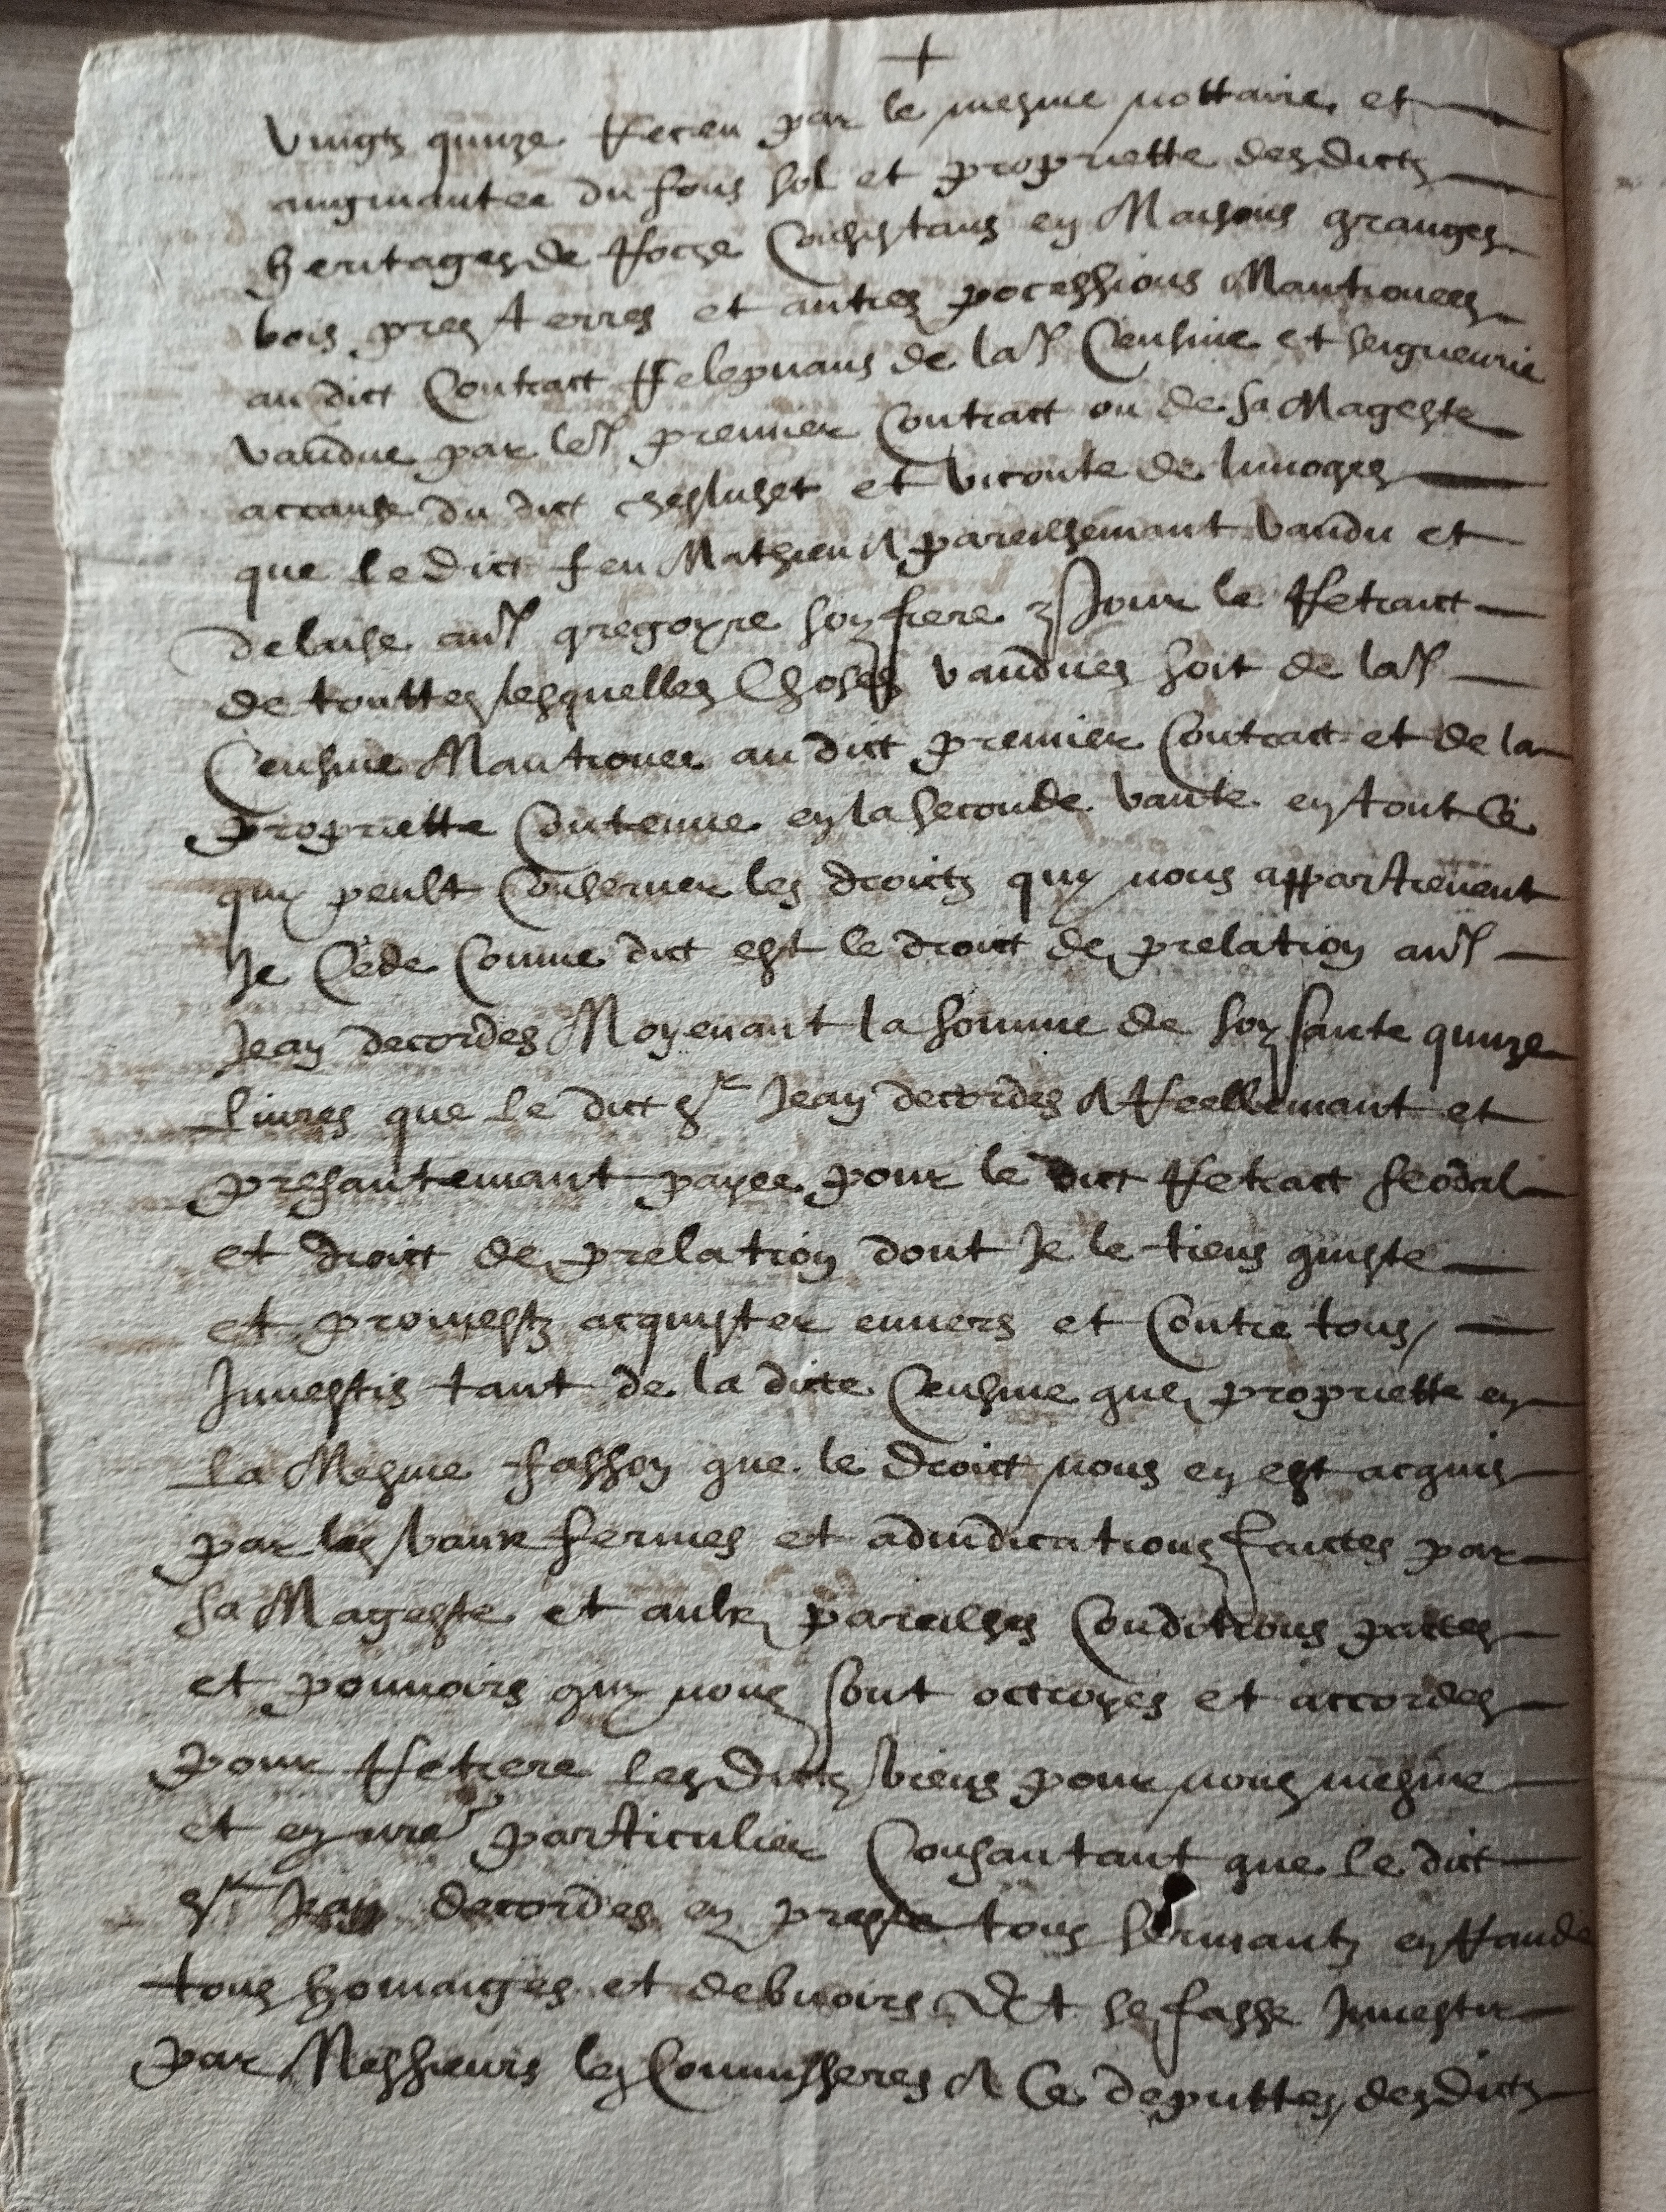 +
vingtz quinze Receu par le mesme nottaire et
augmantee du fons sol et propriette desdictz
heritages de Roche Concistans en Maisons granges
bois pres terres et autres pocessions Mantionees
au dict Contract Relepvans de lad Censive et seigneurie
vandue par led premier Contract ou de sa Mageste
accause du dict cheslusset et viconte de limoges
que le dict feu Mathieu A pareilhemant vandu et
delaise aud gregoyre son frere Jour le Retraict
de touttes lesquelles Choses vandues soit de lad
Censive Mantionee au dict premier Contract et de la
propriette Contenue en la seconde vante en tout Ce
quy peult Conserner les droictz quy nous appartienent
Je Cede Comme dict est le droict de prelation aud
Jean decordes Moyenant la somme de soysante quinze
livres que le dict sr Jean decordes A Reellemant et
presantemant payee pour le dict Retraict feodal
et droict de prelation dont Je le tiens quiste
et promestz acquister envers et Contre tous
Juvestis tant de la dicte Censive que propriette en
la Mesme fasson que le droict nous en est acquis
par les baux fermes et adiudications faictes par
sa Mageste et aulx pareilhes Conditions pactes
et pouvoirs quy nous sont octroyes et accordes
pour Retrere lesdictz biens pour nous mesme
et en nre particulier Consantant que le dict
sr Jean decordes en preste tous sermantz en Rande
tous homaiges et debvoirs Et se fasse Juvestir
par Messieurs les Commisseres A Ce deputtes desdictz